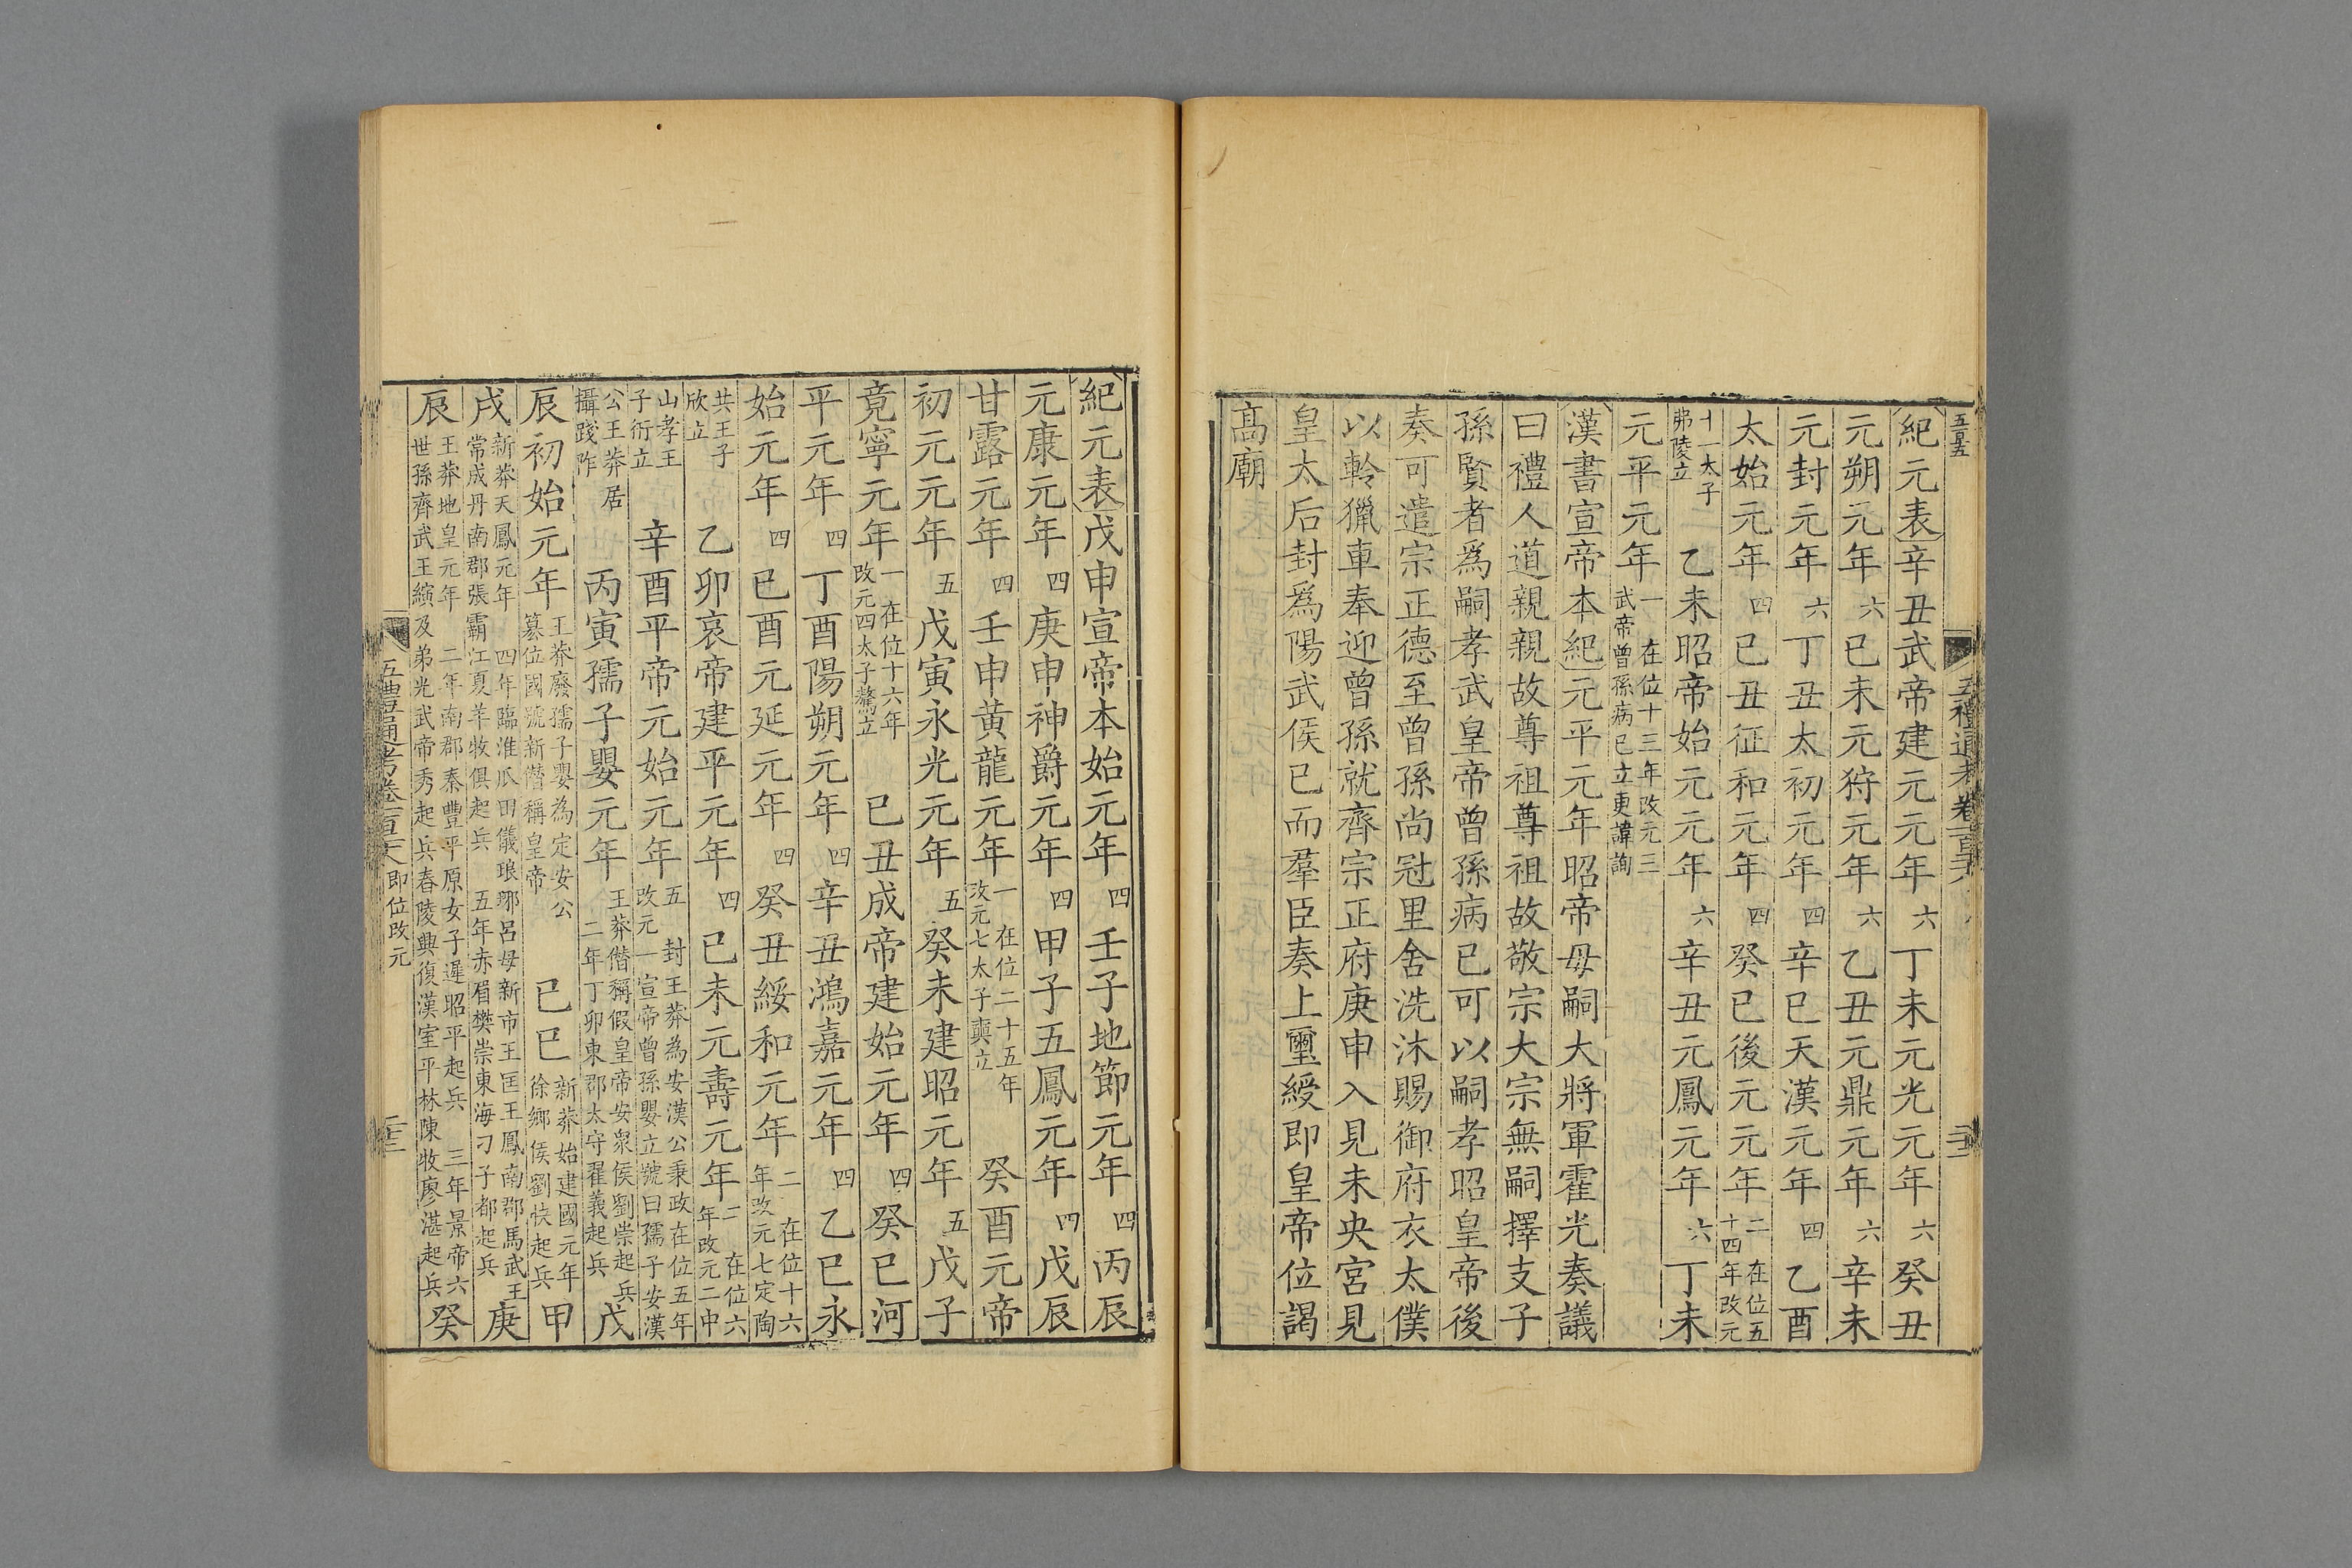 紀元表辛丑武帝建元元年六丁未元光元年六癸丑
元朔元年六己未元狩元年六乙丑元鼎元年六辛未
元封元年六丁丑太初元年四辛巳天漢元年四乙酉
太始元年四己丑征和元年四癸巳後元元年二在位五十四年改元
十一太子弗陵立乙未昭帝始元元年六辛丑元鳳元年六丁未
元平元年一在位十三年改元三武帝曾孫病已立更諱詢
漢書宣帝本紀元平元年昭帝毋嗣大將軍霍光奏議
曰禮人道親親故尊祖尊祖故敬宗大宗無嗣擇支子
孫賢者爲嗣孝武皇帝曾孫病已可以嗣孝昭皇帝後
奏可遣宗正德至曾孫尚冠里舍洗沐賜御府衣太僕
以軨獵車奉迎曾孫就齊宗正府庚申入見未央宮見
皇太后封爲陽武侯已而羣臣奏上璽綬即皇帝位謁
高廟
紀元表戊申宣帝本始元年四壬子地節元年四丙辰
元康元年四庚申神爵元年四甲子五鳳元年四戊辰
甘露元年四壬申黃龍元年一在位二十五年改元七太子奭立癸酉元帝
初元元年五戊寅永光元年五癸未建昭元年五戊子
竟寧元年一在位十六年改元四太子驁立己丑成帝建始元年四癸巳河
平元年四丁酉陽朔元年四辛丑鴻嘉元年四乙巳永
始元年四己酉元延元年四癸丑綏和元年二在位十六年改元七定陶
共王子欣立乙卯哀帝建平元年四己未元壽元年二在位六年改元二中
山孝王子衍立辛酉平帝元始元年五封王莽為安漢公秉政在位五年改元一宣帝曾孫嬰立號曰孺子安漢
公王莽居攝踐阼丙寅孺子嬰元年王莽僭稱假皇帝安衆侯劉崇起兵二年丁卯東郡太守翟義起兵戊
辰初始元年王莽廢孺子嬰為定安公篡位國號新僭稱皇帝己巳新莽始建國元年徐鄉侯劉快起兵甲
戌新莽天鳳元年四年臨淮瓜田儀琅琊呂母新市王匡王鳳南郡馬武王常成丹南郡張霸江夏羊牧俱起兵五年赤眉樊崇東海刁子都起兵庚
辰王莽地皇元年二年南郡秦豐平原女子遲昭平起兵三年景帝六世孫齊武王縯及弟光武帝秀起兵舂陵興復漢室平林陳牧廖湛起兵癸
五禮通考卷一百二十八即位改元